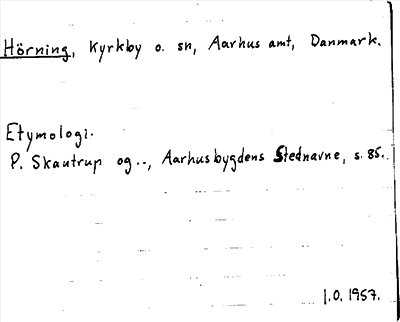 Hörning, Kyrkby o. sn, Aarhus amt, Danmark.
Etymologi.
P. Skautrup og .., Aarhusbygdens Stednavne, s. 85.
1.0. 1957.